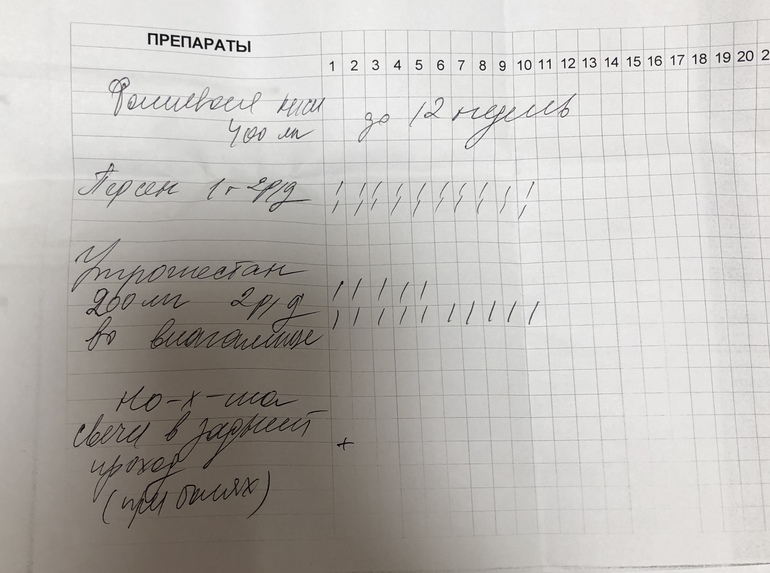 ПРЕПАРАТЫ
1 2 3 4 5 6 7 8 9 10 11 12 13 14 15 16 17 18 19 20 2
Фолиевая кисл
400 мг до 12 недель
Персен 1т 2р/д
Утрожестан
200 мг 2р/д
во влагалище
но-х-ша
свечи в задний
проход
(при болях) +